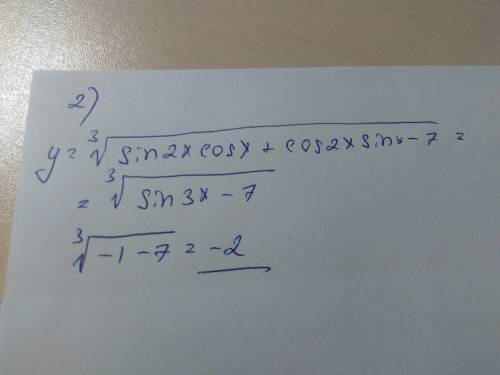 2)
y = ∛(sin2x cosx + cos2x sinx - 7) =
= ∛(sin3x - 7)
∛(-1 - 7) = -2